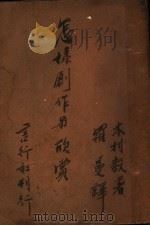 木村毅著
羅曼譯
怎樣創作與欣賞
言行社刊行